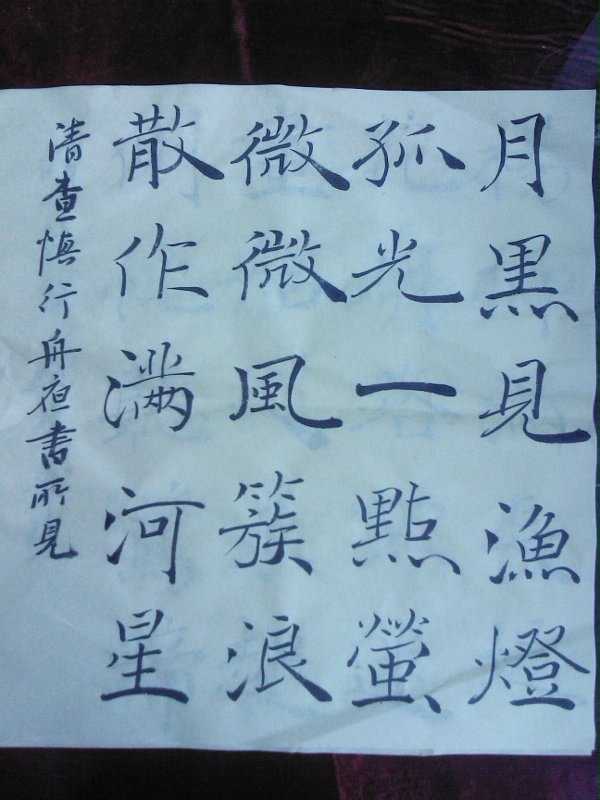 月黑見漁燈
孤光一點螢
微微風簇浪
散作滿河星
清查慎行舟夜書所見